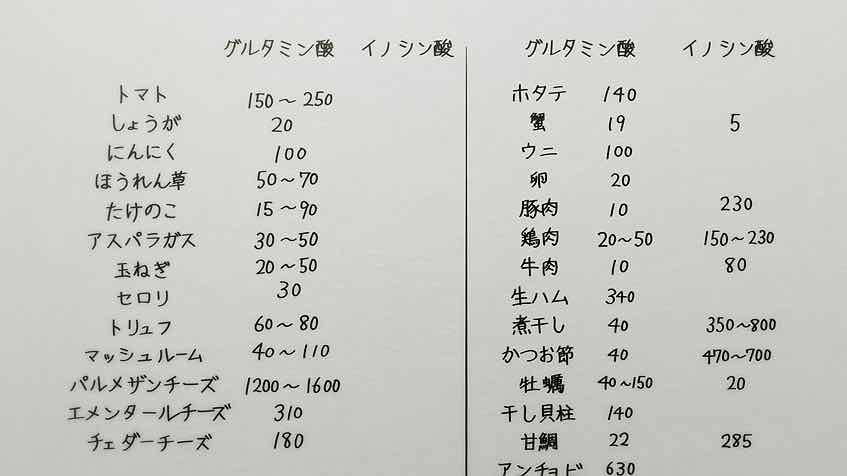 グルタミン酸 イノシン酸
トマト 150～250
しょうが 20
にんにく 100
ほうれん草 50～70
たけのこ 15～90
アスパラガス 30～50
玉ねぎ 20～50
セロリ 30
トリュフ 60～80
マッシュルーム 40～110
パルメザンチーズ 1200～1600
エメンタールチーズ 310
チェダーチーズ 180
グルタミン酸 イノシン酸
ホタテ 140
蟹 19 5
ウニ 100
卵 20
豚肉 10 230
鶏肉 20～50 150～230
牛肉 10 80
生ハム 340
煮干し 40 350～800
かつお節 40 470～700
牡蠣 40～150 20
干し貝柱 140
甘鯛 22 285
アンチョビ 630